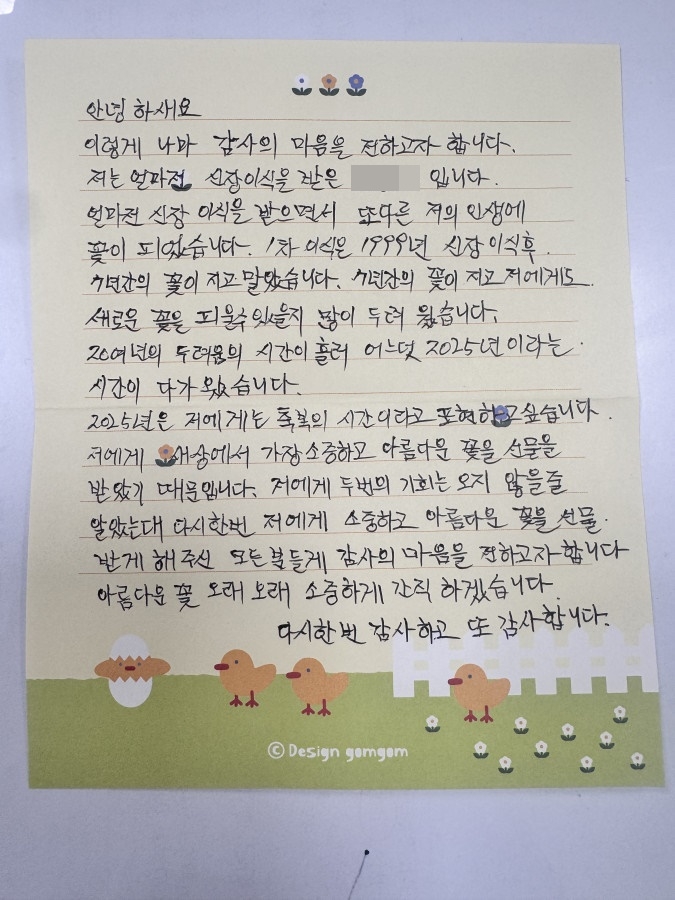 안녕 하세요
이렇게 나마 감사의 마음을 전하고자 합니다.
저는 얼마전 신장이식을 받은 입니다.
얼마전 신장 이식을 받으면서 또다른 저의 인생에
꽃이 피었습니다. 1차 이식은 1999년 신장이식후.
7년간의 꽃이 지고 말았습니다. 7년간의 꽃이 지고 저에게도.
새로운 꽃을 피울수있을지 많이 두려 웠습니다.
20여년의 두려움의 시간이 흘러 어느덧 2025년이라는.
시간이 다가 왔습니다.
2025년은 저에게는 축복의 시간이라고 표현하고싶습니다.
저에게 새상에서 가장소중하고 아름다운 꽃을 선물을
받았기 때문입니다. 저에게 두번의 기회는 오지 않을줄
알았는대 다시한번 저에게 소중하고 아름다운 꽃을 선물.
받게 해주신 모든분들게 감사의 마음을 전하고자합니다
아름다운 꽃 오래 오래 소중하게 간직 하겠습니다.
다시한번 감사하고 또 감사합니다.
© Design gomgom